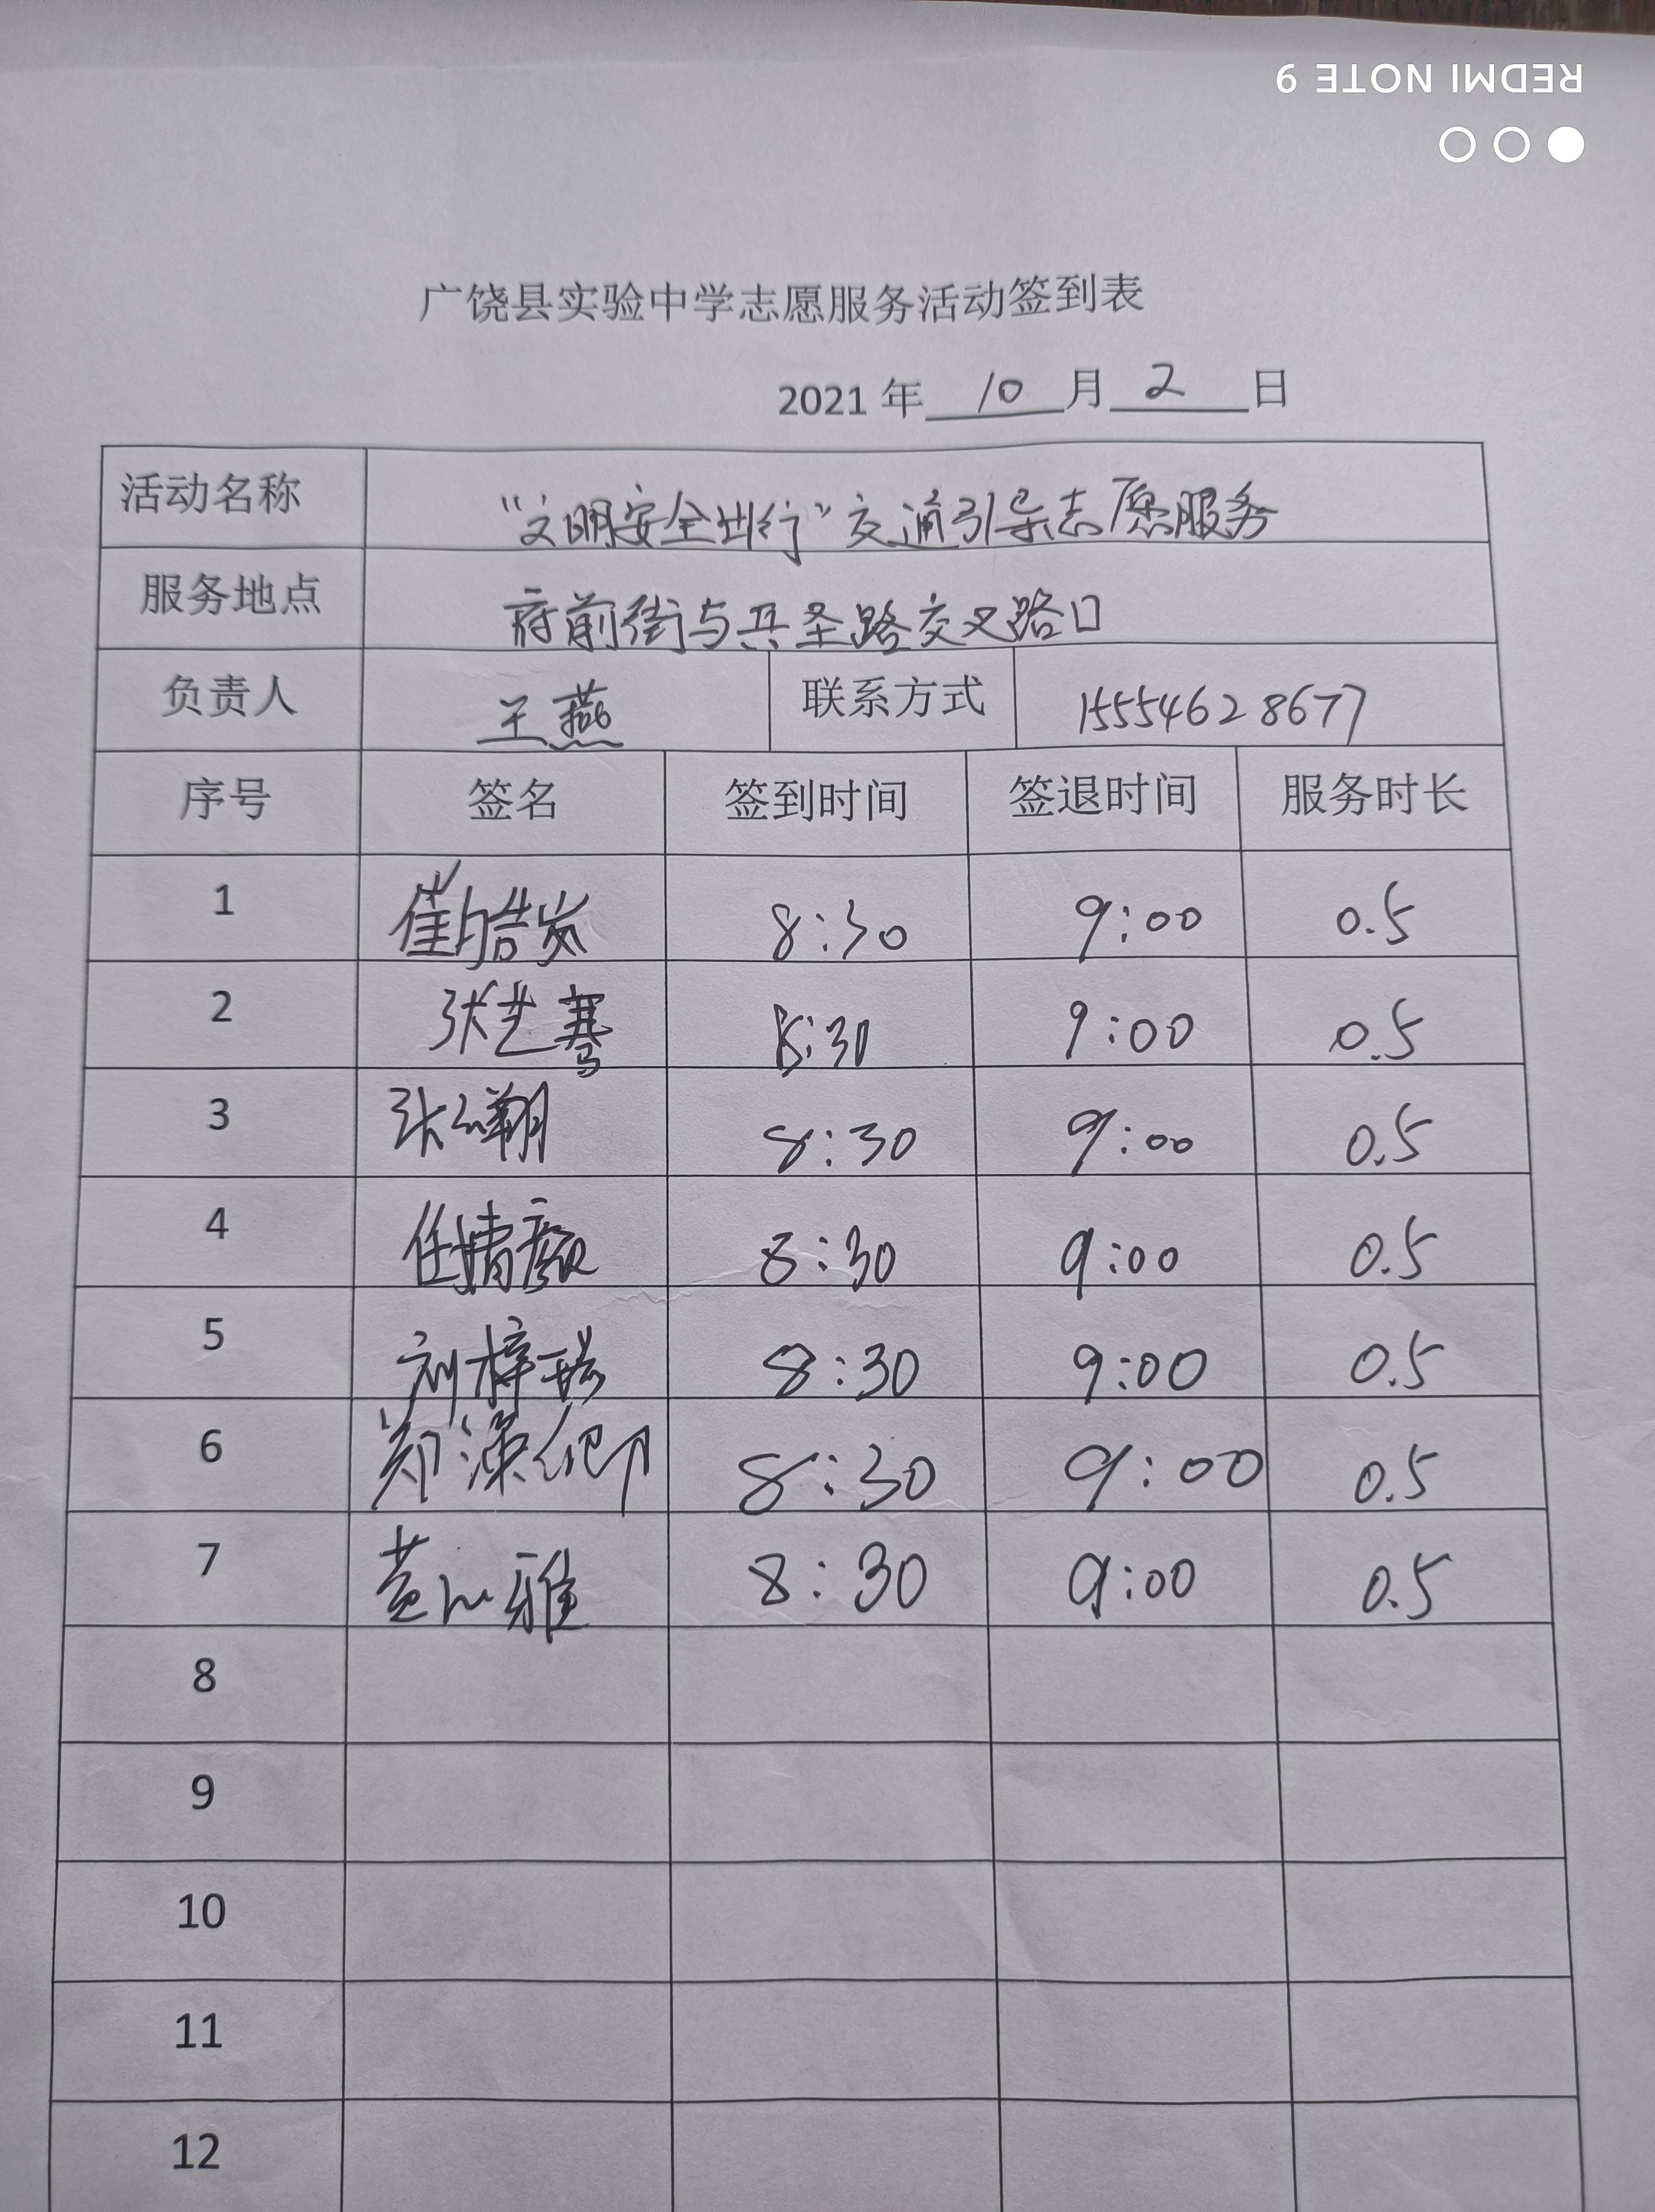 REDMI NOTE 9
广饶县实验中学志愿服务活动签到表
2021 年 10 月 2 日
活动名称 “文明安全出行”交通引导志愿服务
服务地点 府前街与兵圣路交叉路口
负责人 王燕 联系方式 15554628677
序号 签名 签到时间 签退时间 服务时长
1 崔皓岚 8:30 9:00 0.5
2 张艺骞 8:30 9:00 0.5
3 张翔 8:30 9:00 0.5
4 任婧颜 8:30 9:00 0.5
5 刘梓瑶 8:30 9:00 0.5
6 郑 8:30 9:00 0.5
7 黄心雅 8:30 9:00 0.5
8
9
10
11
12